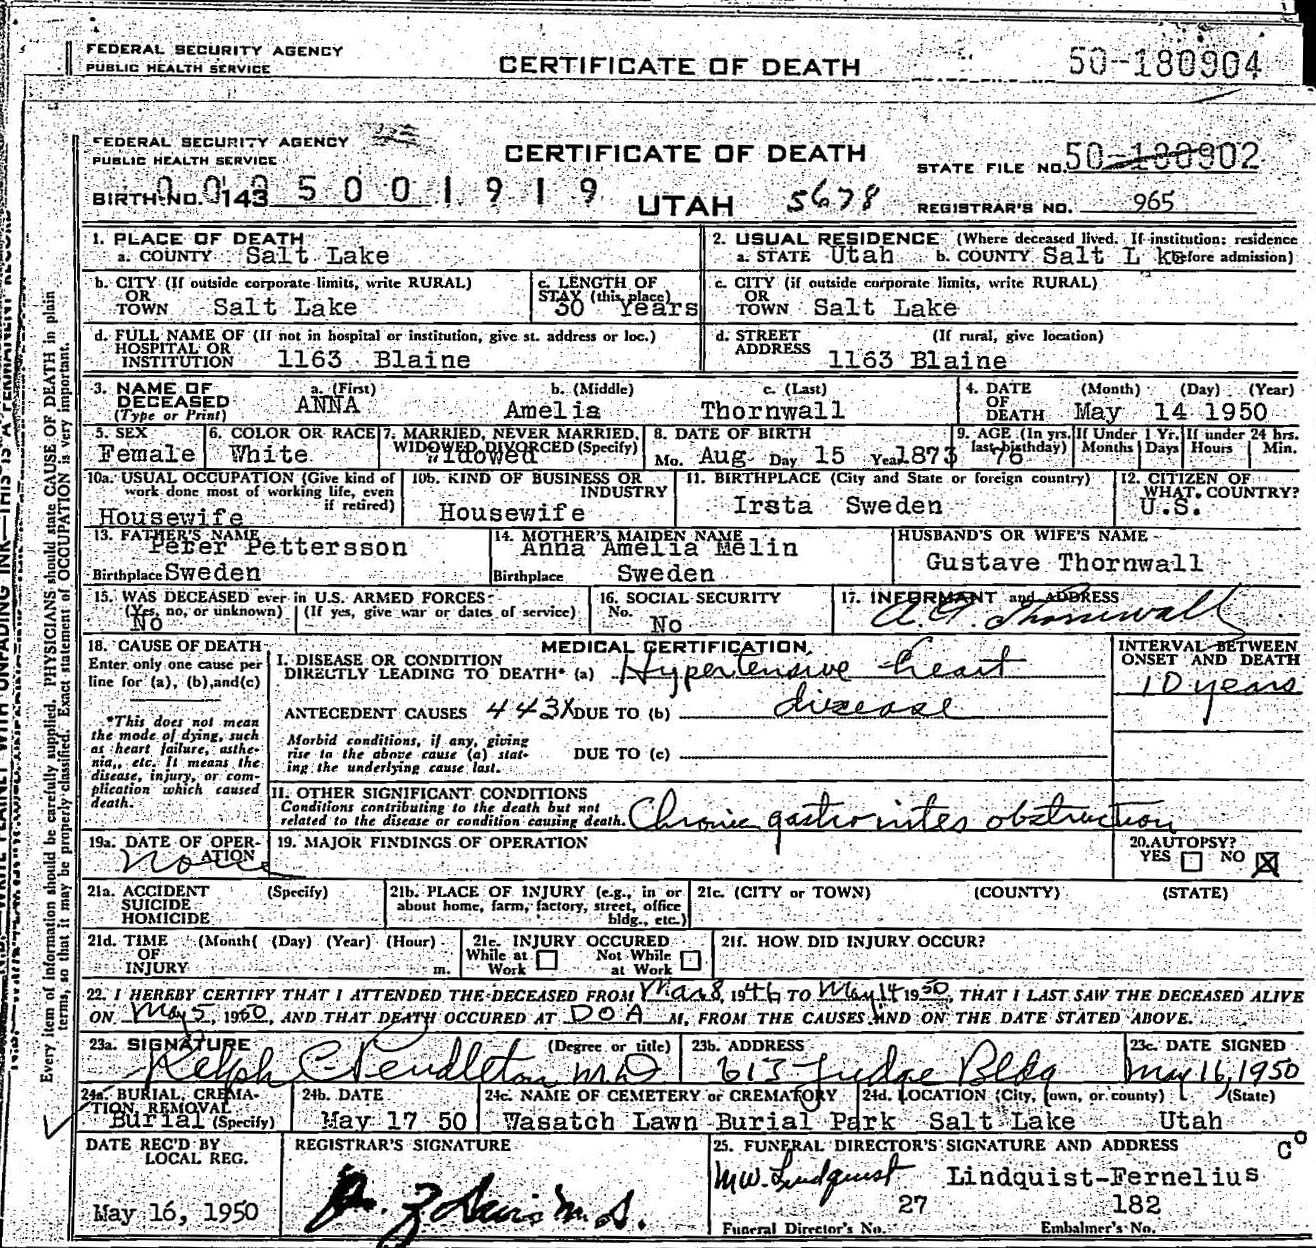 FEDERAL SECURITY AGENCY
PUBLIC HEALTH SERVICE
CERTIFICATE OF DEATH
50-180904
FEDERAL SECURITY AGENCY
PUBLIC HEALTH SERVICE
CERTIFICATE OF DEATH
STATE FILE NO. 50-180902
BIRTH NO. 143 5001919
UTAH 5678
REGISTRAR'S NO. 965
1. PLACE OF DEATH
a. COUNTY Salt Lake
2. USUAL RESIDENCE (Where deceased lived. If institution: residence before admission)
a. STATE Utah b. COUNTY Salt L ke
b. CITY (If outside corporate limits, write RURAL)
OR
TOWN Salt Lake
c. LENGTH OF
STAY (this place)
50 Years
c. CITY (if outside corporate limits, write RURAL)
OR
TOWN Salt Lake
d. FULL NAME OF (If not in hospital or institution, give st. address or loc.)
HOSPITAL OR
INSTITUTION 1163 Blaine
d. STREET (If rural, give location)
ADDRESS 1163 Blaine
3. NAME OF DECEASED (Type or Print)
a. (First) b. (Middle) c. (Last)
ANNA Amelia Thornwall
4. DATE OF DEATH (Month) (Day) (Year)
May 14 1950
5. SEX
Female
6. COLOR OR RACE
White
7. MARRIED, NEVER MARRIED,
WIDOWED, DIVORCED (Specify)
Widowed
8. DATE OF BIRTH
Mo. Aug Day 15 Year 1873
9. AGE (In yrs. last birthday)
76
If Under 1 Yr. Months Days
If under 24 hrs. Hours Min.
10a. USUAL OCCUPATION (Give kind of
work done most of working life, even
if retired)
Housewife
10b. KIND OF BUSINESS OR
INDUSTRY
Housewife
11. BIRTHPLACE (City and State or foreign country)
Irsta Sweden
12. CITIZEN OF
WHAT COUNTRY?
U.S.
13. FATHER'S NAME
Peter Pettersson
Birthplace Sweden
14. MOTHER'S MAIDEN NAME
Anna Amelia Melin
Birthplace Sweden
HUSBAND'S OR WIFE'S NAME
Gustave Thornwall
15. WAS DECEASED ever in U.S. ARMED FORCES
(Yes, no, or unknown) (If yes, give war or dates of service)
No
16. SOCIAL SECURITY
No.
No
17. INFORMANT and ADDRESS
Thornwall
18. CAUSE OF DEATH
Enter only one cause per
line for (a), (b), and (c)
*This does not mean
the mode of dying, such
as heart failure, asthe-
nia, etc. It means the
disease, injury, or com-
plication which caused
death.
MEDICAL CERTIFICATION
I. DISEASE OR CONDITION
DIRECTLY LEADING TO DEATH* (a) Hypertensive heart
ANTECEDENT CAUSES 443X DUE TO (b) disease
Morbid conditions, if any, giving
rise to the above cause (a) stat-
ing the underlying cause last.
DUE TO (c)
INTERVAL BETWEEN
ONSET AND DEATH
10 years
II. OTHER SIGNIFICANT CONDITIONS
Conditions contributing to the death but not
related to the disease or condition causing death. Chronic gastro obstruction
19a. DATE OF OPER-
ATION
None
19. MAJOR FINDINGS OF OPERATION
20. AUTOPSY?
YES NO X
21a. ACCIDENT (Specify)
SUICIDE
HOMICIDE
21b. PLACE OF INJURY (e.g., in or
about home, farm, factory, street, office
bldg., etc.)
21c. (CITY or TOWN) (COUNTY) (STATE)
21d. TIME (Month( (Day) (Year) (Hour)
OF
INJURY m.
21e. INJURY OCCURED
While at Work Not While at Work
21f. HOW DID INJURY OCCUR?
22. I HEREBY CERTIFY THAT I ATTENDED THE DECEASED FROM Mar 8, 1946 TO May 14 1950, THAT I LAST SAW THE DECEASED ALIVE
ON May 5, 1950, AND THAT DEATH OCCURED AT DOA M, FROM THE CAUSES AND ON THE DATE STATED ABOVE.
23a. SIGNATURE (Degree or title)
Ralph C Pendleton M.D
23b. ADDRESS
613 Judge Bldg
23c. DATE SIGNED
May 16, 1950
24a. BURIAL, CREMA-
TION, REMOVAL
Burial (Specify)
24b. DATE
May 17 50
24c. NAME OF CEMETERY or CREMATORY
Wasatch Lawn Burial Park
24d. LOCATION (City, town, or county) (State)
Salt Lake Utah
DATE REC'D BY
LOCAL REG.
May 16, 1950
REGISTRAR'S SIGNATURE
25. FUNERAL DIRECTOR'S SIGNATURE AND ADDRESS
MW. Lindquist Lindquist-Fernelius
27 182
Funeral Director's No. Embalmer's No.
Every item of information should be carefully supplied. PHYSICIANS should state CAUSE OF DEATH in plain
terms, so that it may be properly classified. Exact statement of OCCUPATION is very important.